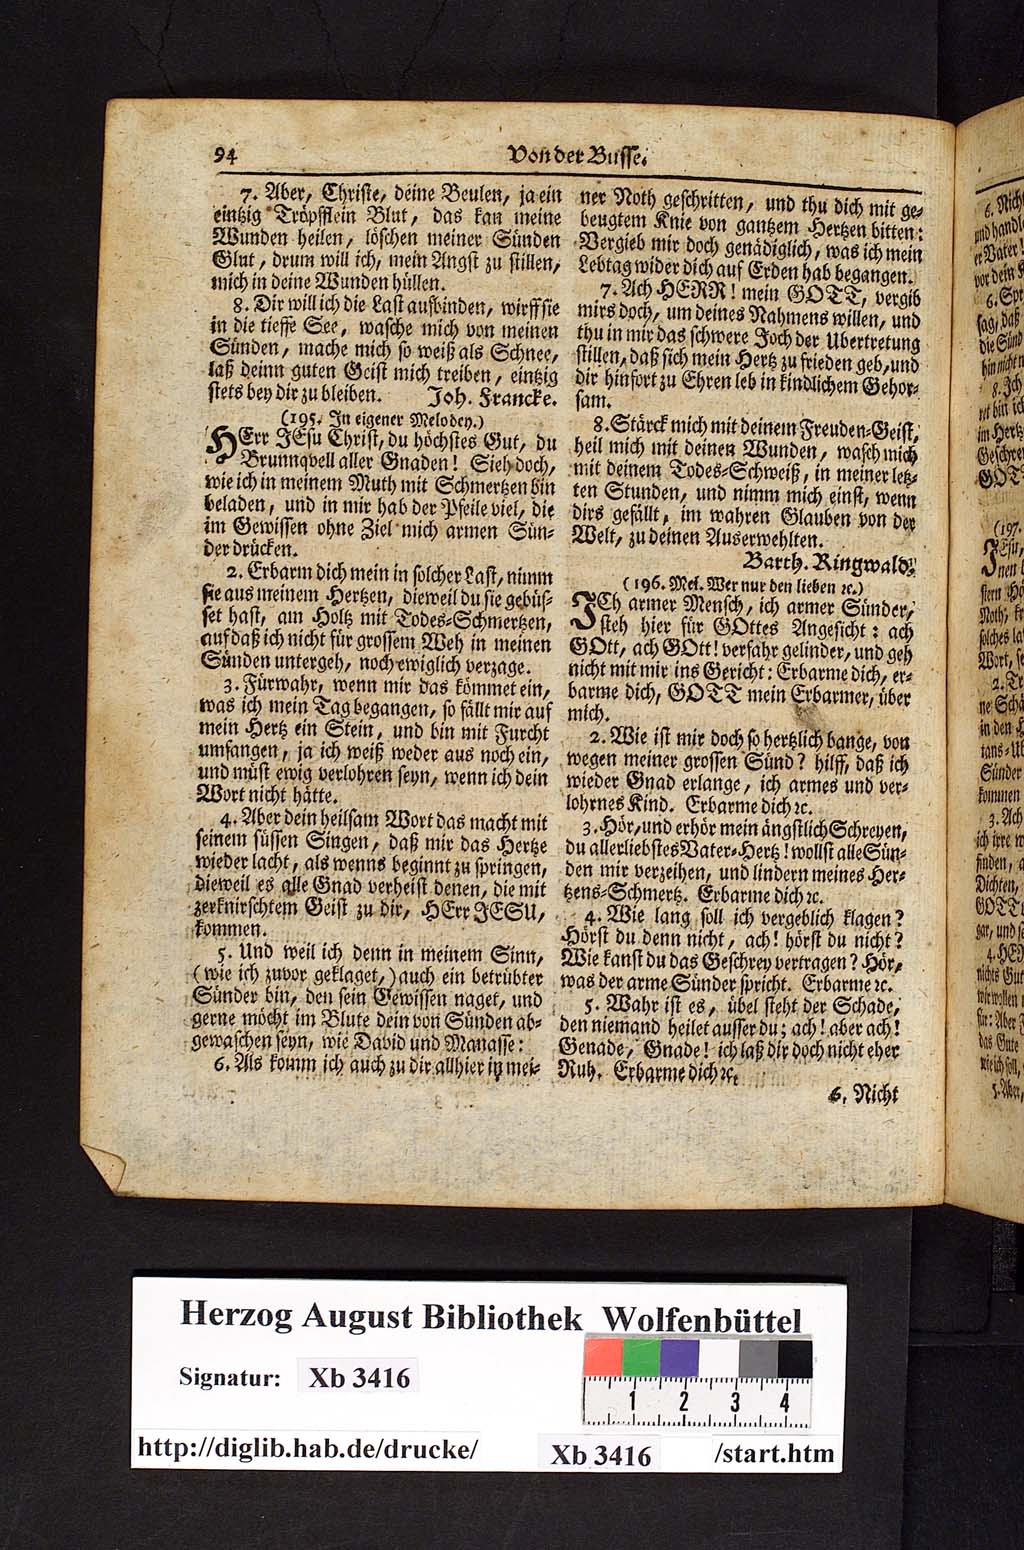 94
Von der Busse.
7. Aber, Christe, deine Beulen, ja ein
eintzig Tröpfflein Blut, das kan meine
Wunden heilen, löschen meiner Sünden
Glut, drum will ich, mein Angst zu stillen,
mich in deine Wunden hüllen.
8. Dir will ich die Last aufbinden, wirff sie
in die tieffe See, wasche mich von meinen
Sünden, mache mich so weiß als Schnee,
laß deinn guten Geist mich treiben, eintzig
stets bey dir zu bleiben. Joh. Francke.
(195. In eigener Melodey.)
HErr JEsu Christ, du höchstes Gut, du
Brunnqvell aller Gnaden! Sieh doch,
wie ich in meinem Muth mit Schmertzen bin
beladen, und in mir hab der Pfeile viel, die
im Gewissen ohne Ziel mich armen Sün-
der drücken.
2. Erbarm dich mein in solcher Last, nimm
sie aus meinem Hertzen, dieweil du sie gebüs-
set hast, am Holtz mit Todes-Schmertzen,
auf daß ich nicht für grossem Weh in meinen
Sünden untergeh, noch ewiglich verzage.
3. Fürwahr, wenn mir das kömmet ein,
was ich mein Tag begangen, so fällt mir auf
mein Hertz ein Stein, und bin mit Furcht
umfangen, ja ich weiß weder aus noch ein,
und müst ewig verlohren seyn, wenn ich dein
Wort nicht hätte.
4. Aber dein heilsam Wort das macht mit
seinem süssen Singen, daß mir das Hertze
wieder lacht, als wenns beginnt zu springen,
dieweil es alle Gnad verheist denen, die mit
zerknirschtem Geist zu dir, HErr JESU,
kommen.
5. Und weil ich denn in meinem Sinn,
(wie ich zuvor geklaget,) auch ein betrübter
Sünder bin, den sein Gewissen naget, und
gerne möcht im Blute dein von Sünden ab-
gewaschen seyn, wie David und Manasse:
6. Als komm ich auch zu dir allhier in mei-
ner Noth geschritten, und thu dich mit ge-
beugtem Knie von gantzem Hertzen bitten:
Vergieb mir doch genädiglich, was ich mein
Lebtag wider dich auf Erden hab begangen.
7. Ach HERR! mein GOTT, vergib
mirs doch, um deines Nahmens willen, und
thu in mir das schwere Joch der Ubertretung
stillen, daß sich mein Hertz zu frieden geb, und
dir hinfort zu Ehren leb in kindlichem Gehor-
sam.
8. Stärck mich mit deinem Freuden-Geist,
heil mich mit deinen Wunden, wasch mich
mit deinem Todes-Schweiß, in meiner letz-
ten Stunden, und nimm mich einst, wenn
dirs gefällt, im wahren Glauben von der
Welt, zu deinen Auserwehlten.
Barth. Ringwald.
(196. Mel. Wer nur den lieben ꝛc.)
JCh armer Mensch, ich armer Sünder,
steh hier für GOttes Angesicht: ach
GOtt, ach GOtt! verfahr gelinder, und geh
nicht mit mir ins Gericht: Erbarme dich, er-
barme dich, GOTT mein Erbarmer, über
mich.
2. Wie ist mir doch so hertzlich bange, von
wegen meiner grossen Sünd? hilff, daß ich
wieder Gnad erlange, ich armes und ver-
lohrnes Kind. Erbarme dich ꝛc.
3. Hör, und erhör mein ängstlich Schreyen,
du allerliebstes Vater-Hertz! wollst alle Sün-
den mir verzeihen, und lindern meines Her-
tzens-Schmertz. Erbarme dich ꝛc.
4. Wie lang soll ich vergeblich klagen?
Hörst du denn nicht, ach! hörst du nicht?
Wie kanst du das Geschrey vertragen? Hör,
was der arme Sünder spricht. Erbarme ꝛc.
5. Wahr ist es, übel steht der Schade,
den niemand heilet ausser du; ach! aber ach!
Genade, Gnade! ich laß dir doch nicht eher
Ruh. Erbarme dich ꝛc.
6. Nicht
Herzog August Bibliothek Wolfenbüttel
Signatur: Xb 3416
1 2 3 4
http://diglib.hab.de/drucke/ Xb 3416 /start.htm